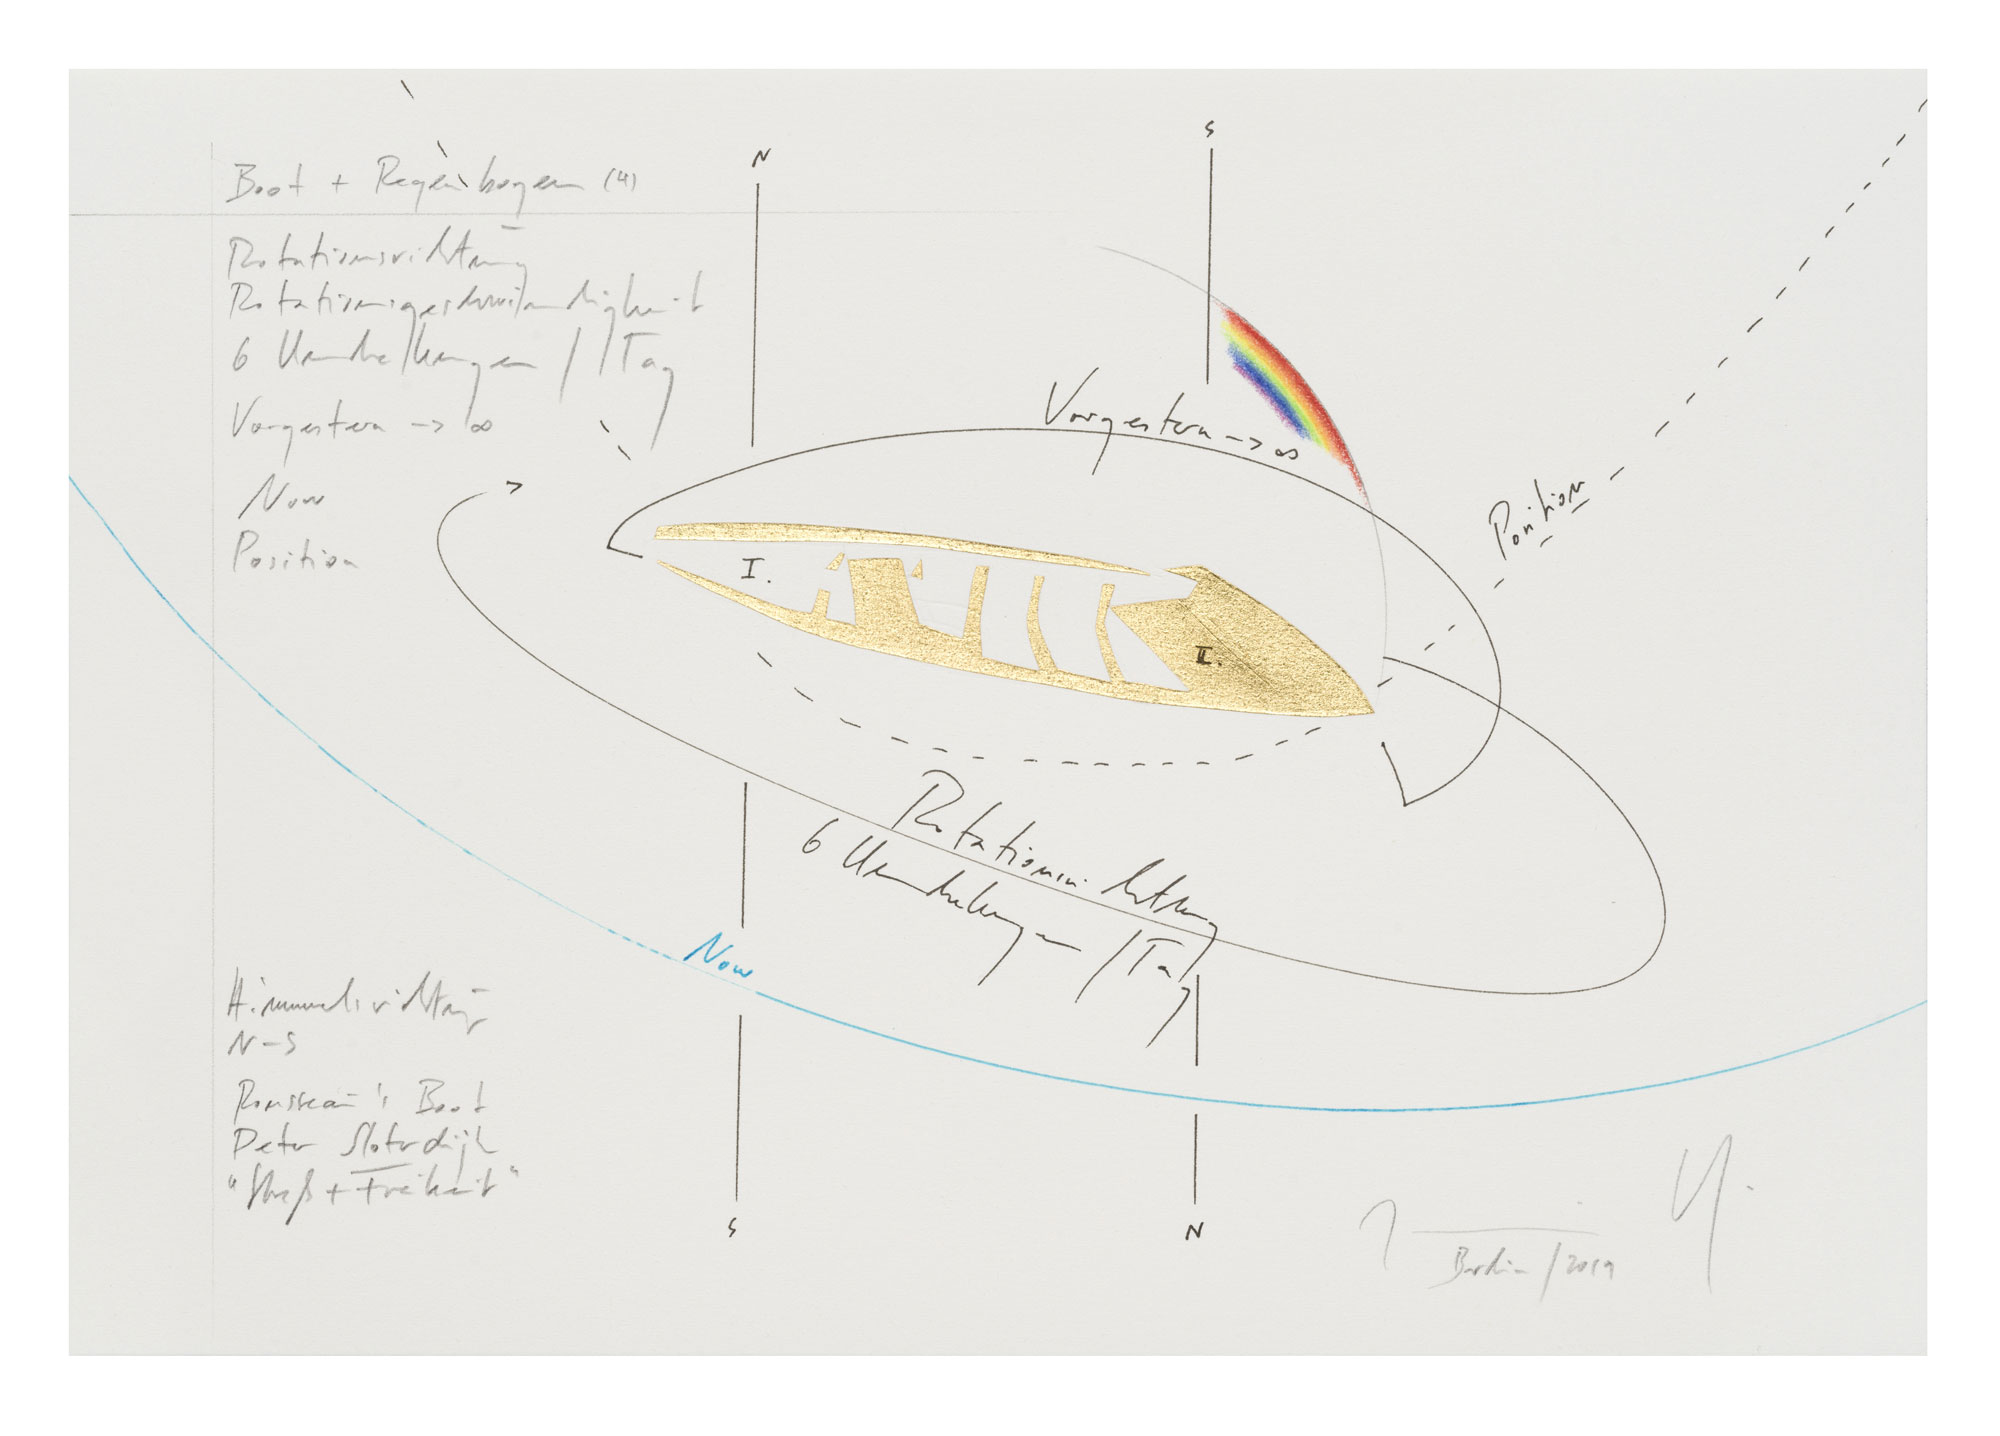 Boot + Regenbogen (4)
Rotationsrichtung
Rotationsgeschwindigkeit
6 Umdrehungen / Tag
Vorgestern -> ∞
Now
Position
N
S
Vorgestern -> ∞
Position
I.
II.
Rotationsrichtung
6 Umdrehungen / Tag
Now
Himmelsrichtung
N - S
Rousseau's Boot
Peter Sloterdijk
"Streß + Freiheit"
S
N
Berlin / 2019